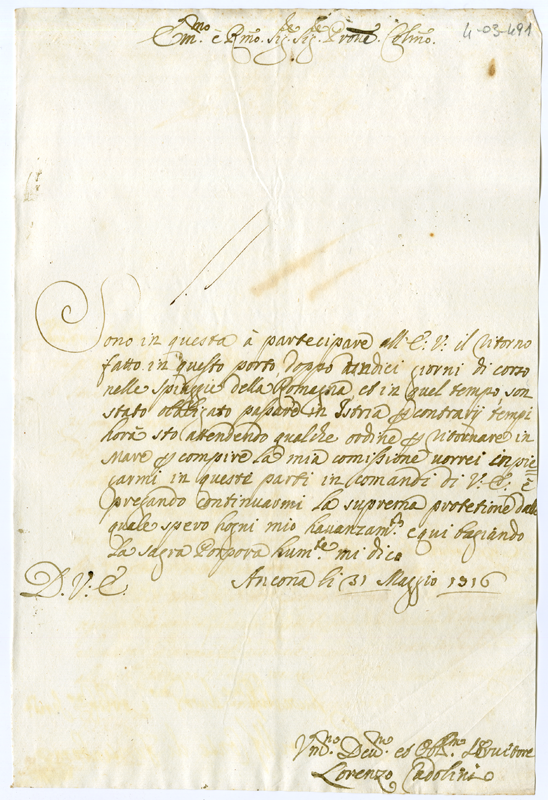 4-03-491
Em.mo e Rmo. Sig.re Sig.re Prone. Colmo.
Sono in questa à partecipare all'E. V. il ritorno
fatto in questo porto, doppo quindici giorni di corso
nelle Spiaggie della Romagna, et in quel tempo son
stato obbligato passare in Istria p contrarij tempi
hora sto attendendo qualche ordine p ritornare in
mare p compire la mia comissione vorrei inpie
garmi in queste parti in comandi di V. E. e
pregando continuarmi la suprema protetione dalla
quale spero hogni mio havanzam.to e qui bagiando
la sagra Porpora hum.te mi dico
D. V. E. Ancona li 31 Maggio 1716
Um.mo Dev.mo et Obb.mo Servitore
Lorenzo Cadolini